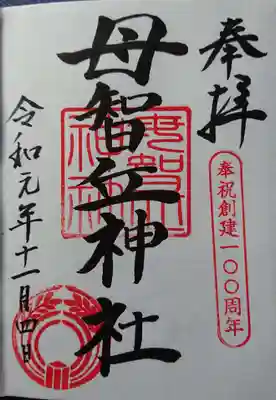 奉拝
奉祝創建一〇〇周年
母智丘神社
令和元年十一月四日